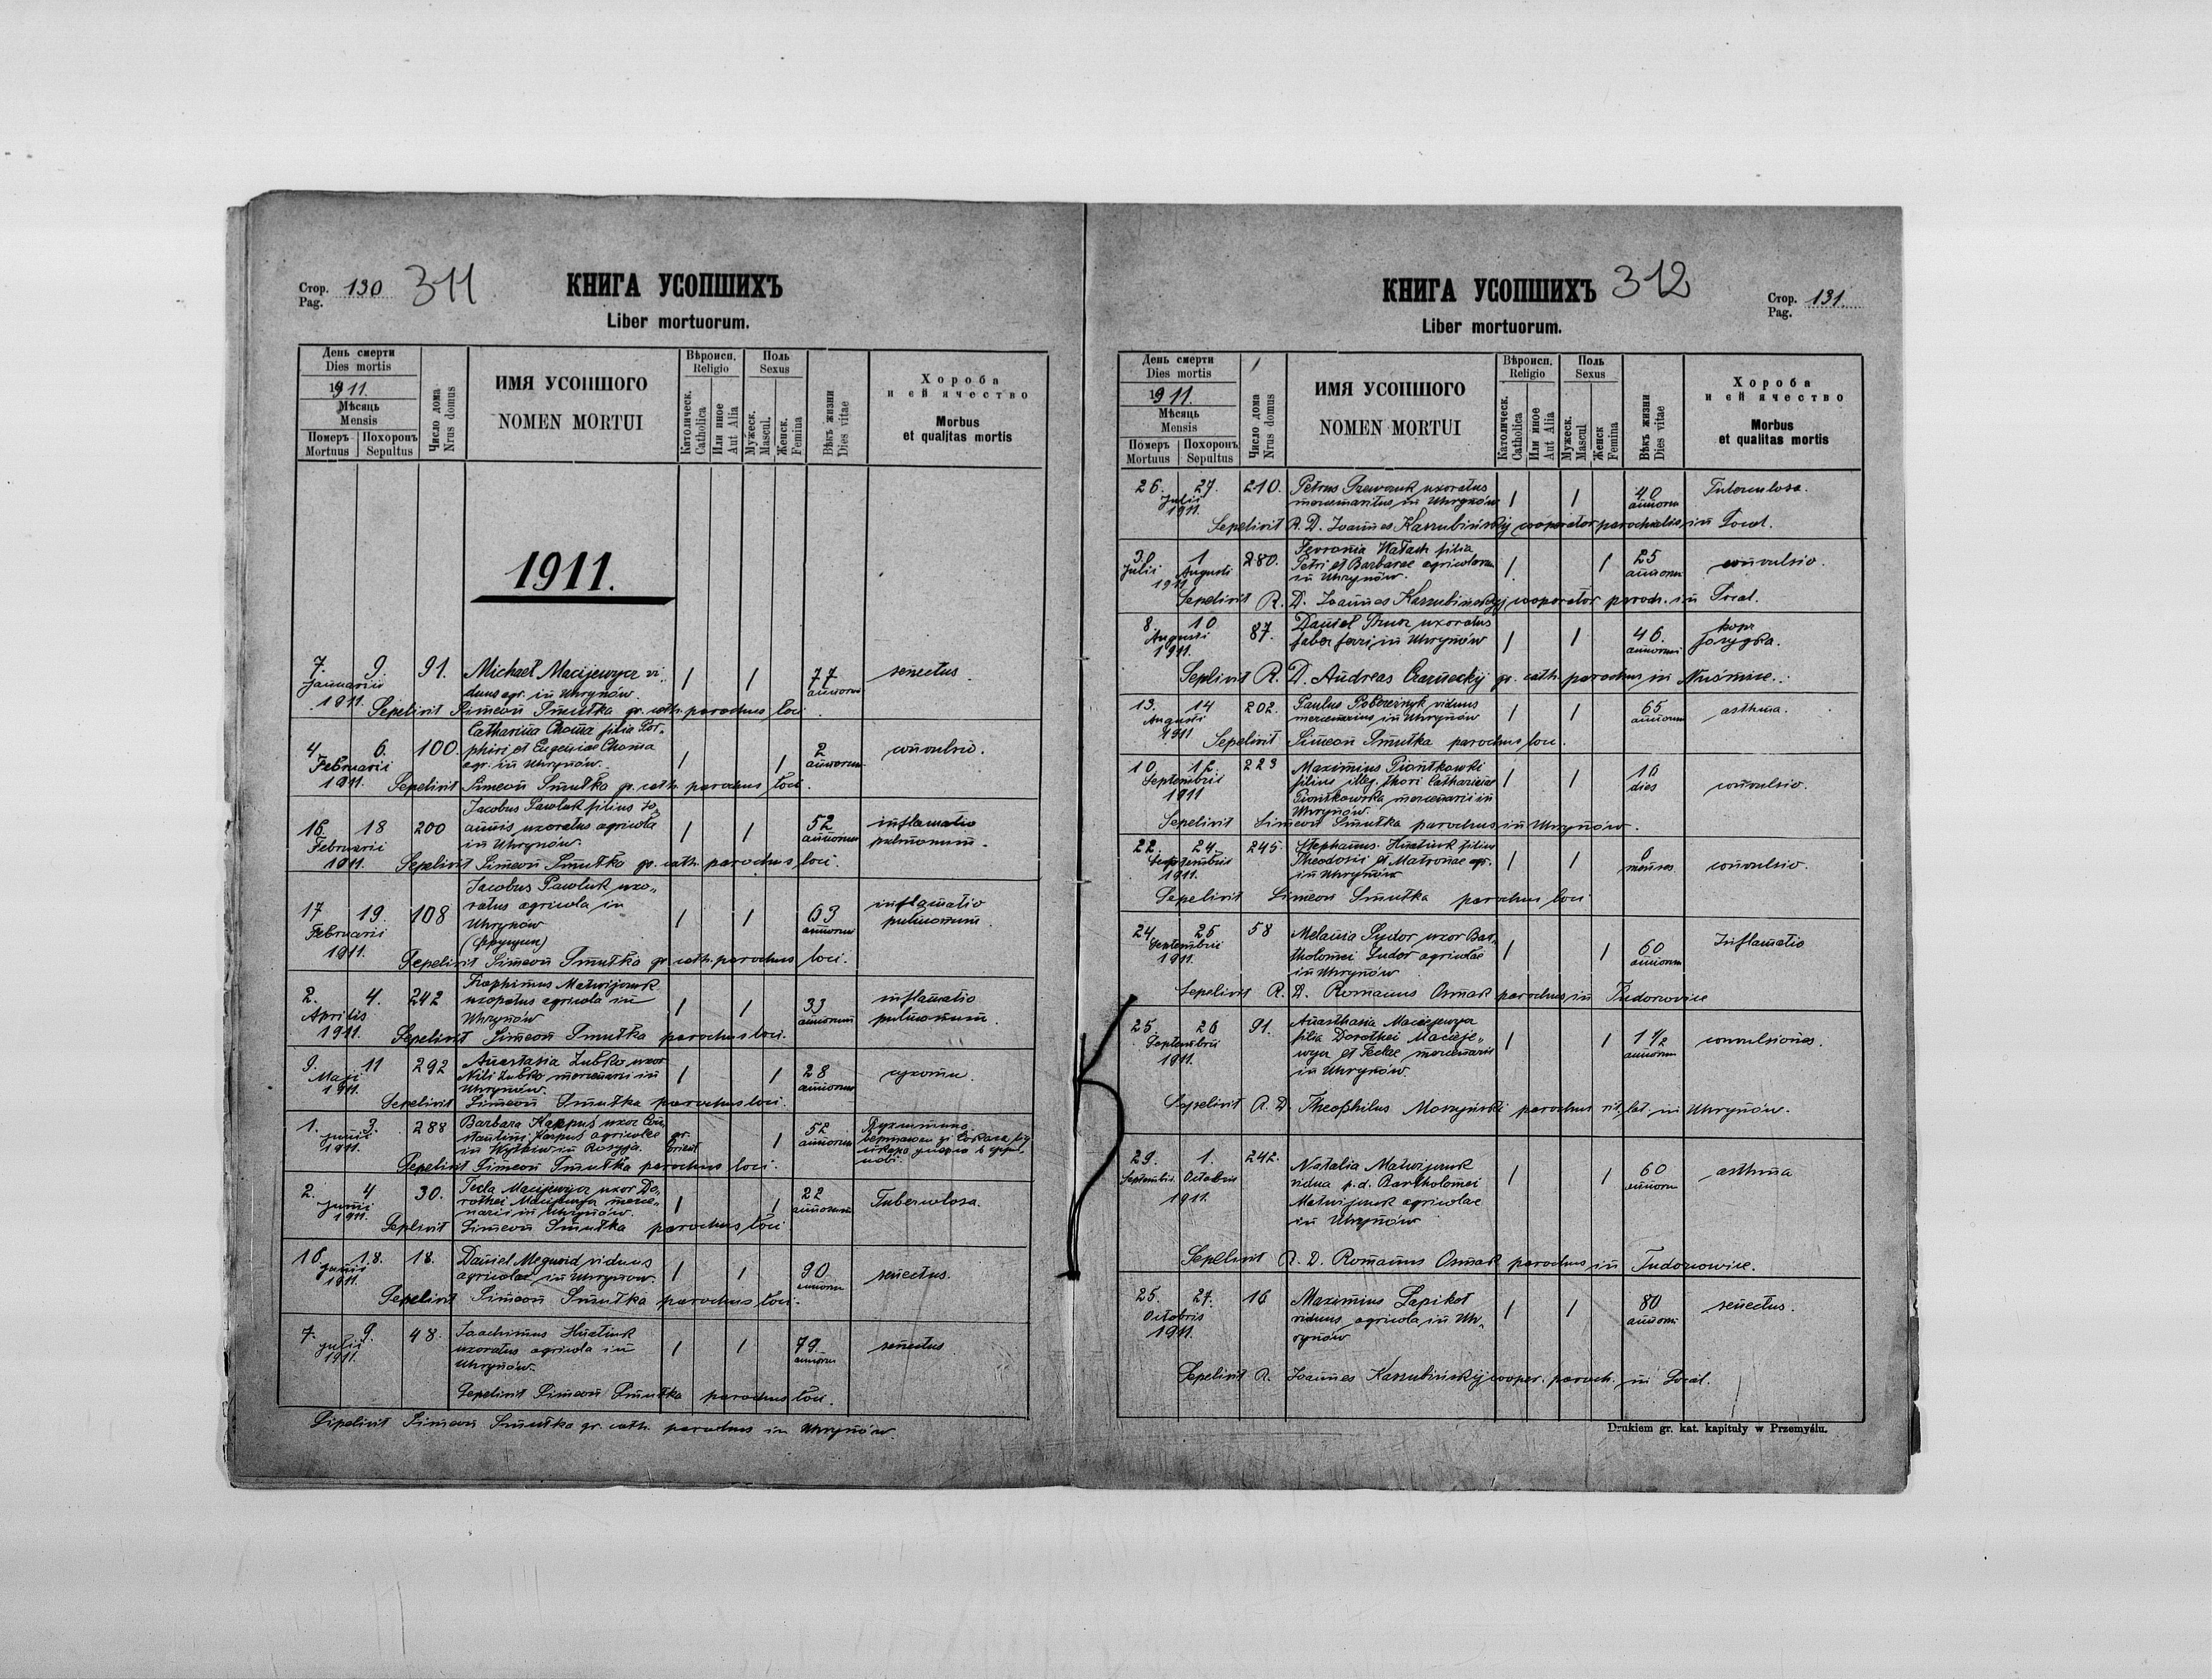 Стор. 130 311
Pag.
КНИГА УСОПШИХЪ
Liber mortuorum.
День смерти
Dies mortis
1911.
Мѣсяць
Mensis
Померъ Похоронъ
Mortuus Sepultus
Число дома
Nrus domus
ИМЯ УСОПШОГО
NOMEN MORTUI
Вѣроисп.
Religio
Католическ.
Catholica
Или иное
Aut Alia
Поль
Sexus
Мужеск.
Mascul.
Женск.
Femina
Вѣкъ жизни
Dies vitae
Хороба
и ей ячество
Morbus
et qualitas mortis
1911.
7. 9. 91. Michael Macijewycz vi- / / 77 senectus.
Januarii duus agr. in Uhrynów. annorum
1911. Sepelivit Simeon Smutka gr. cath. parochus loci.
Catharina Choma filia Por-
4. 6. 100. phiri et Eugeniae Choma / / 2 convulsio.
Februarii agr. in Uhrynów. annorum
1911. Sepelivit Simeon Smutka gr. cath. parochus loci.
Jacobus Pawluk filius Jo-
16 18 200 annis uxoratus agricola / / 52 inflamatio
Februarii in Uhrynów. annorum pulmonum.
1911. Sepelivit Simeon Smutka gr. cath. parochus loci.
Jacobus Pawluk uxo-
17 19. 108 ratus agricola in / / 63 inflamatio
Februarii Uhrynów annorum pulmonum.
1911. Sepelivit Simeon Smutka gr. cath. parochus loci.
Trophimus Matwijczuk
2. 4. 242 uxoratus agricola in / / 33 inflamatio
Aprilis Uhrynów annorum pulmonum.
1911. Sepelivit Simeon Smutka parochus loci.
9. 11 292 Anastasia Zubko uxor / / 28 сухоти.
Maji Nili Zubko mercenarii in annorum
1911. Uhrynów.
Sepelivit Simeon Smutka parochus loci.
1. 3. 288 Barbara Karpus uxor Con- gr. / 52
junii stantini Karpus agricolae orient annorum
1911. in Rosyja.
Sepelivit Simeon Smutka parochus loci.
2. 4 30. Tecla Macijewycz uxor Do- / / 22 Tuberculosa.
junii rothei Macijewycz merce- annorum
1911. narii in Uhrynów.
Seplivit Simeon Smutka parochus loci
16 18. 18. Daniel viduus / / 90 senectus.
junii agricolae in Uhrynow. annorum
1911.
Sepelivit Simeon Smutka parochus loci.
7. 9. 48. Joachimus Hnatiuk / / 79. senectus.
julii uxoratus agricola in annorum
1911. Uhrynów.
Sepelivit Simeon Smutka parochus loci.
Sipelivit Simeon Smutka gr. cath. parochus in Uhrynów.
КНИГА УСОПШИХЪ 312
Liber mortuorum.
Стор. 131.
Pag.
День смерти
Dies mortis
1911.
Мѣсяць
Mensis
Померъ Похоронъ
Mortuus Sepultus
Число дома
Nrus domus
ИМЯ УСОПШОГО
NOMEN MORTUI
Вѣроисп.
Religio
Католическ.
Catholica
Или иное
Aut Alia
Поль
Sexus
Мужеск.
Mascul.
Женск
Femina
Вѣкъ жизни
Dies vitae
Хороба
и ей ячество
Morbus
et qualitas mortis
26. 27. 210. Petrus uxoratus / / 40 Tuberculosa.
Julii in Uhrynów annorum
1911.
Sepelivit R. D. Joannes Kaszubinskij cooperator parochialis in Socal.
30 1 280. Fevronia Wałach filia / / 25 convulsio.
Julii Augusti Petri et Barbarae agricolarum annorum
1911 in Uhrynów.
Sepelivit R. D. Joannes Kaszubinskyj cooperator paroch. in Socal.
8. 10 87. Daniel uxoratus / / 46.
Augusti faber feri in Uhrynów annorum
1911
Seplivit R. D. Andreas Czarneckij gr. cath. parochus in Nuśmice.
13. 14 202. Paulus Pobereżnyk viduus / / 65 asthma.
Augusti mercenarius in Uhrynów annorum
1911 Sepelivit Simeon Smutka parochus loci.
10. 12. 223 Maximius Piontkowski / / 16 convulsio.
Septembris filius illeg. thori Catharinae dies
1911 Piontkowska mercenarii in
Uhrynów.
Sepelivit Simeon Smutka parochus in Uhrynów.
22. 24. 245. Stephanus Hnatiuk filius / / 6 convulsio.
Septembris Theodosii et Matronae agr. menses
1911. in Uhrynów
Sepelivit Simeon Smutka parochus loci
24. 25 58 Melania Sydor uxor Bar- / / 60 Inflamatio
Septembris tholomei Sudor agricolae annorum
1911. in Uhrynów
Sepelivit R. D. Romanus Osmak parochus in Tudorowice
25. 26 91. Anasthasia Maciejewycz / / 1 1/2 convulsiones.
Septembris filia Dorothei Macieje- annorum
1911. wycz et Teclae mercenarii
in Uhrynów.
Sepelivit R. D. Theophilus Moszyński parochus rit. lat. in Uhrynów.
29. 1. 242. Natalia Matwijczuk / / 60 asthma
Septembris. Octobris vidua p. d. Bartholomei annorum
1911. Matwijczuk agricolae
in Uhrynów
Sepelivit R. D. Romanus Osmak parochus in Tudorowice.
25. 27. 16 Maximius Łapikot / / 80 senectus.
Octobris viduus agricola in Uh- annorum
1911. rynów
Sepelivit R. Joannes Kaszubińskij cooper. paroch. in Socal.
Drukiem gr. kat. kapituły w Przemyślu.